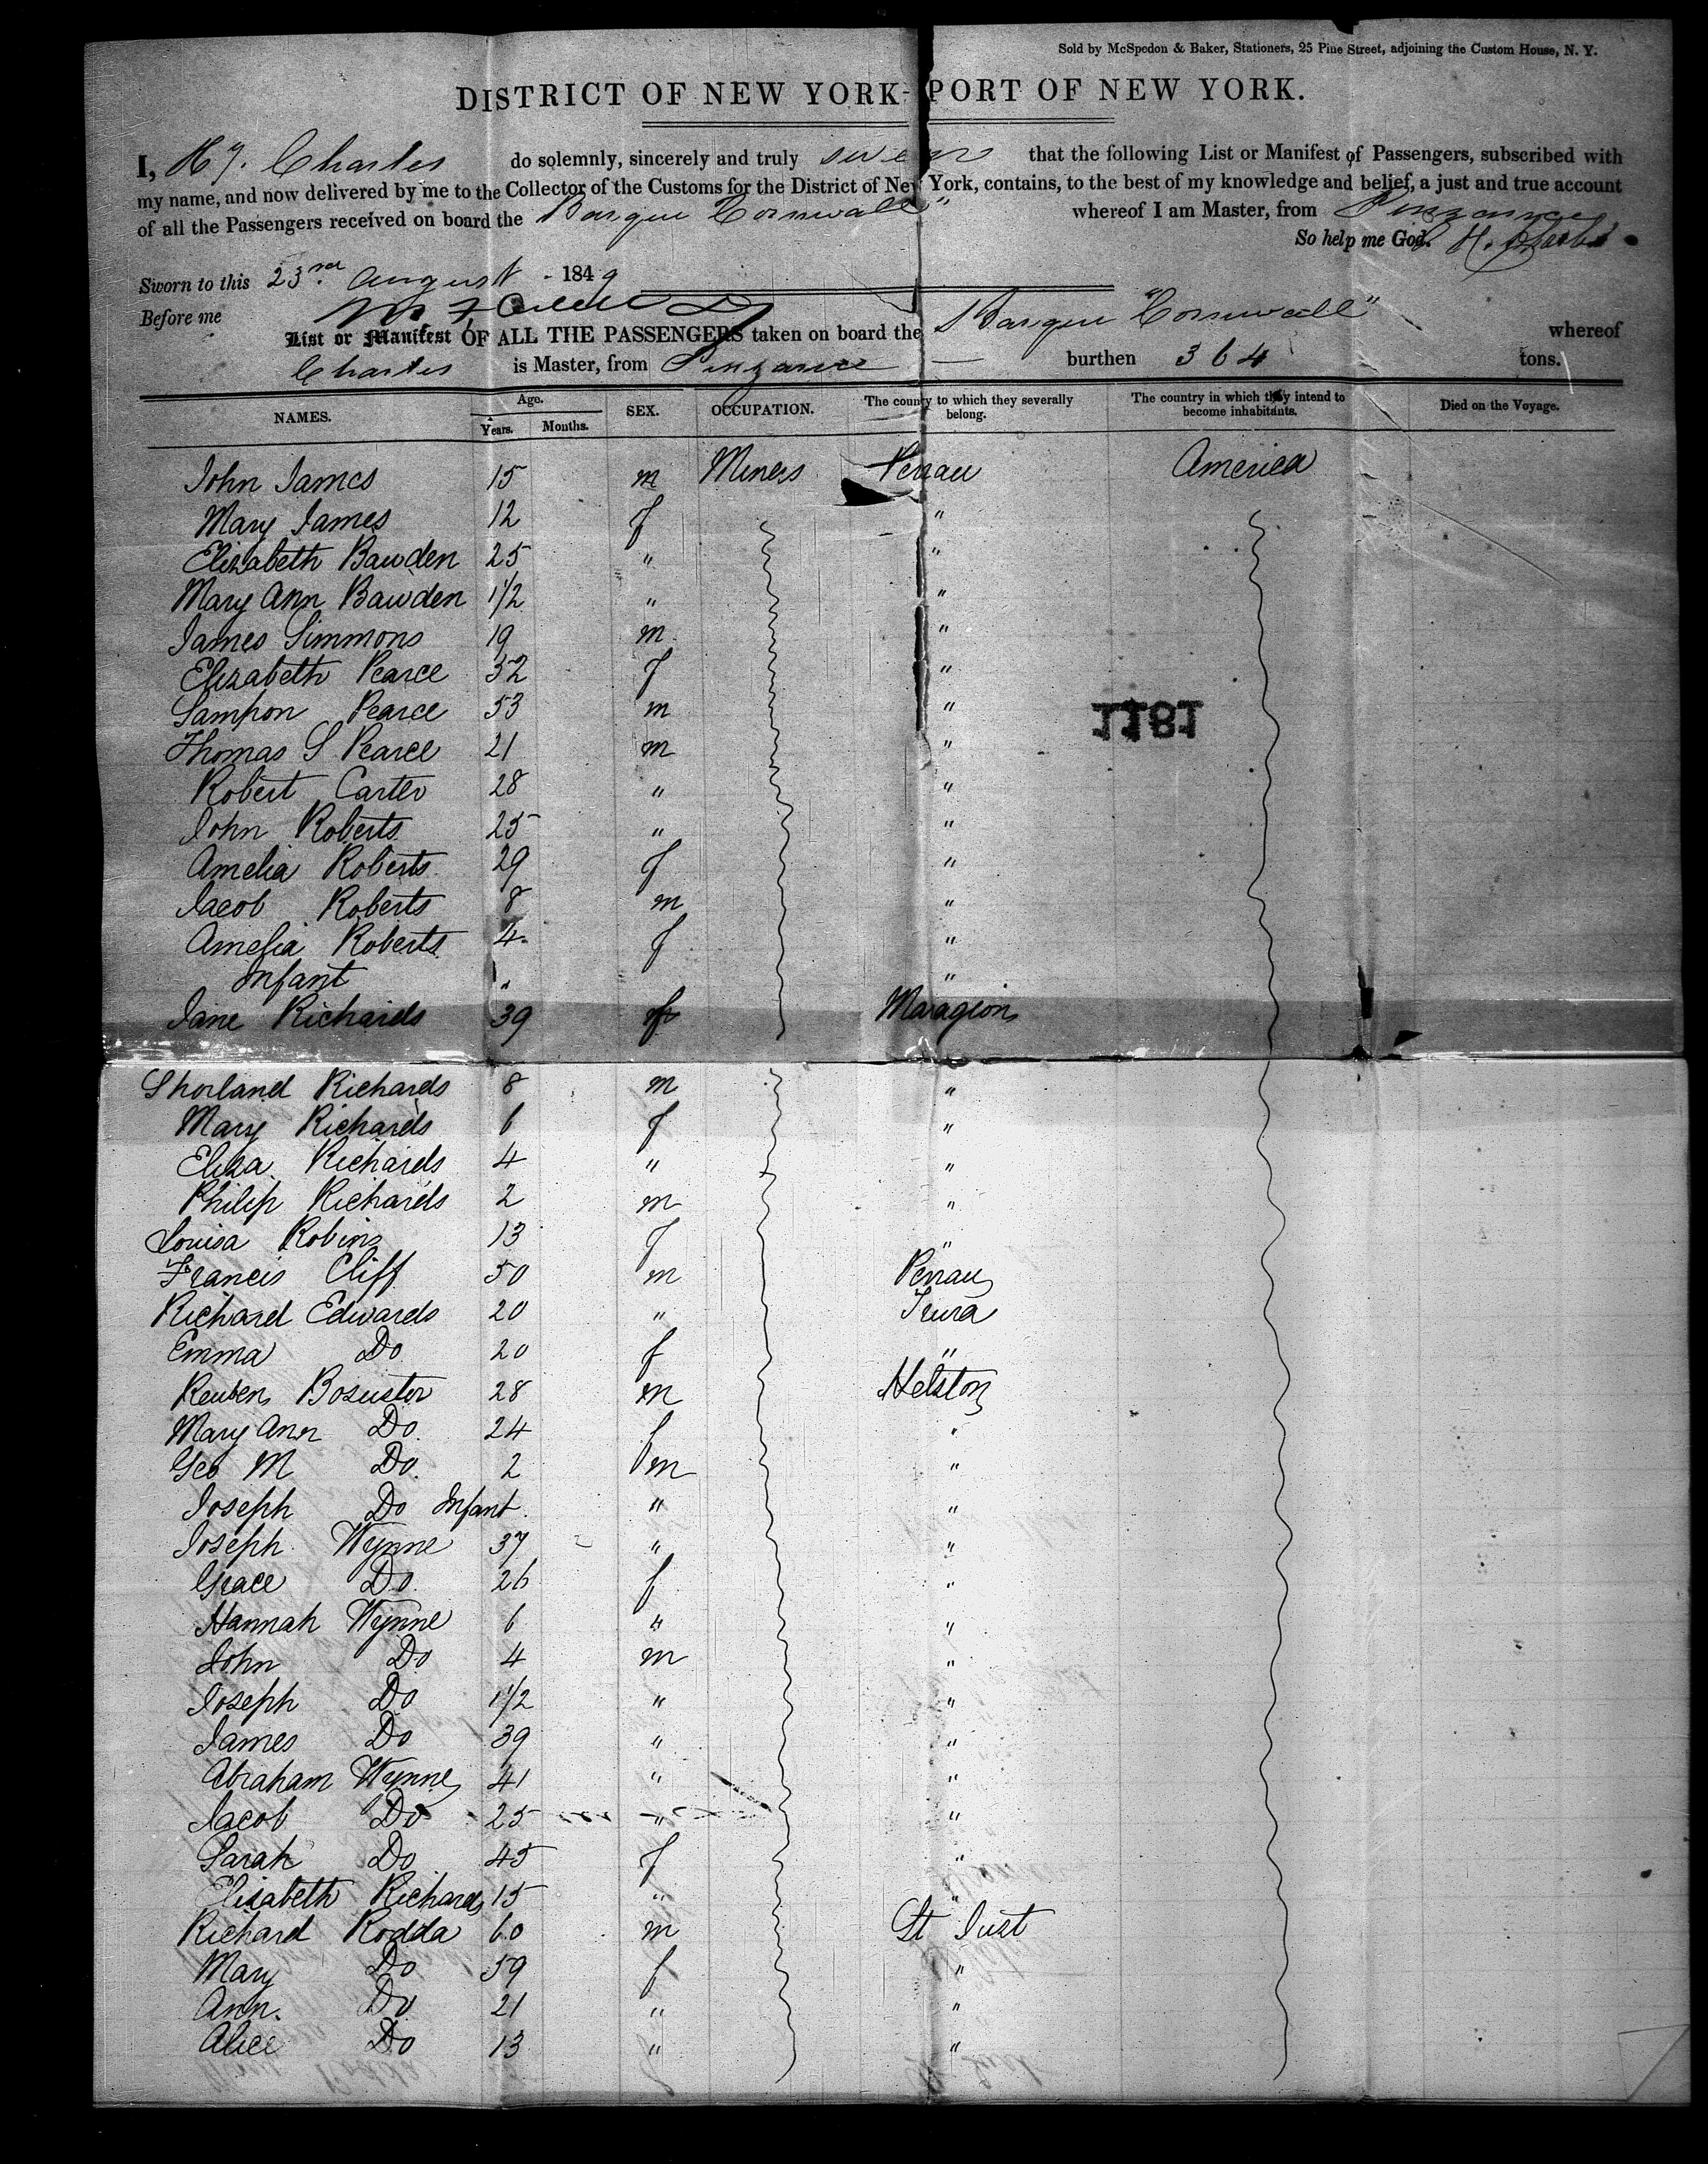 Sold by McSpedon & Baker, Stationers, 25 Pine Street, adjoining the Custom House, N. Y.
DISTRICT OF NEW YORK-PORT OF NEW YORK.
I, Hy. Charles do solemnly, sincerely and truly swear that the following List or Manifest of Passengers, subscribed with
my name, and now delivered by me to the Collector of the Customs for the District of New York, contains, to the best of my knowledge and belief, a just and true account
of all the Passengers received on board the Barque Cornwall" whereof I am Master, from Penzance
So help me God. H. Charles
Sworn to this 23rd August - 1849
Before me
List or Manifest OF ALL THE PASSENGERS taken on board the Barque "Cornwall" whereof
Charles is Master, from Penzance — burthen 364 tons.
NAMES. Age. Years. Months. SEX. OCCUPATION. The county to which they severally belong. The country in which they intend to become inhabitants. Died on the Voyage.
John James 15 m Miners Perran America
Mary James 12 f "
Elizabeth Bawden 25 " "
Mary Ann Bawden 1/2 " "
James Simmons 19 m "
Elizabeth Pearce 32 f "
Sampson Pearce 53 m "
1181
Thomas S Pearce 21 m "
Robert Carter 28 " "
John Roberts 25 " "
Amelia Roberts 29 f "
Jacob Roberts 8 m "
Amelia Roberts 4 f "
Infant " "
Jane Richards 39 f Maragion
Shorland Richards 8 m "
Mary Richards 6 f "
Eliza Richards 4 " "
Philip Richards 2 m "
Louisa Robins 13 f "
Francis Cliff 50 m Perran
Richard Edwards 20 "
Emma Do 20 f "
Reuben Bosustow 28 m Helston
Mary Ann Do. 24 f "
Geo M Do. 2 m "
Joseph Do Infant. " "
Joseph Wynne 37 " "
Grace Do. 26 f "
Hannah Wynne 6 " "
John Do 4 m "
Joseph Do 1 1/2 " "
James Do 39 " "
Abraham Wynne 41 " "
Jacob Do 25 " "
Sarah Do 45 f "
Elisabeth Richards 15 " "
Richard Rodda 60 m St Just
Mary Do 59 f "
Ann. Do 21 " "
Alice Do 13 " "